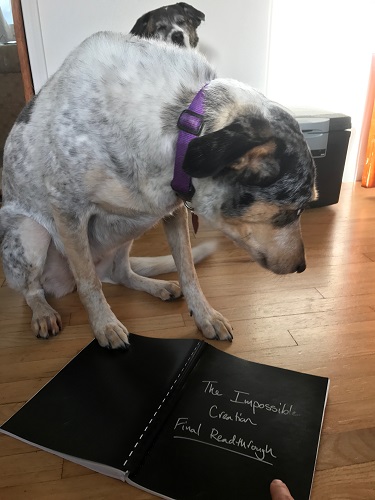 The Impossible
Creation
Final Readthrough